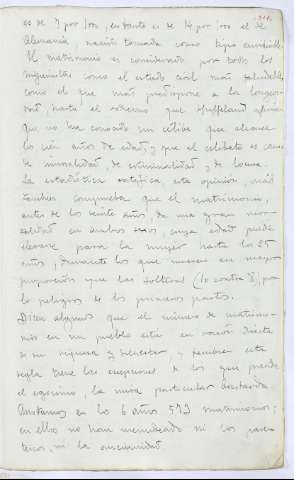 es de 7 por 100, en tanto es de 14 por 100 el de
Alemania, nación tomada como tipo
El matrimonio es considerado por todos los
higienistas como el estado civil más saludable,
como el que más predispone a la longevi-
dad, hasta el extremo que Huffeland afirma
que no ha conocido un célibe que alcance
los cien años de edad, y que el celibato es causa
de inmoralidad, de criminalidad y de locura.
La estadística ratifica esta opinión, más
tambien comprueba que el matrimonio,
antes de los veinte años, da una gran mor-
talidad en ambos sexos, cuya edad puede
elevarse para la mujer hasta los 25
años, durante los que mueren en mayor
proporción que las solteras (10 contra 8) por
los peligros de los primeros partos.
Dicen algunos que el número de matrimo-
nios en un pueblo está en razón directa
de su riqueza y bienestar, y tambien esta
regla tiene las excepciones de los que
el egoismo, la mira particular
Anotamos en los 6 años 573 matrimonios;
en ellos no han menudeado ni los paren-
tescos, ni la ancianidad.